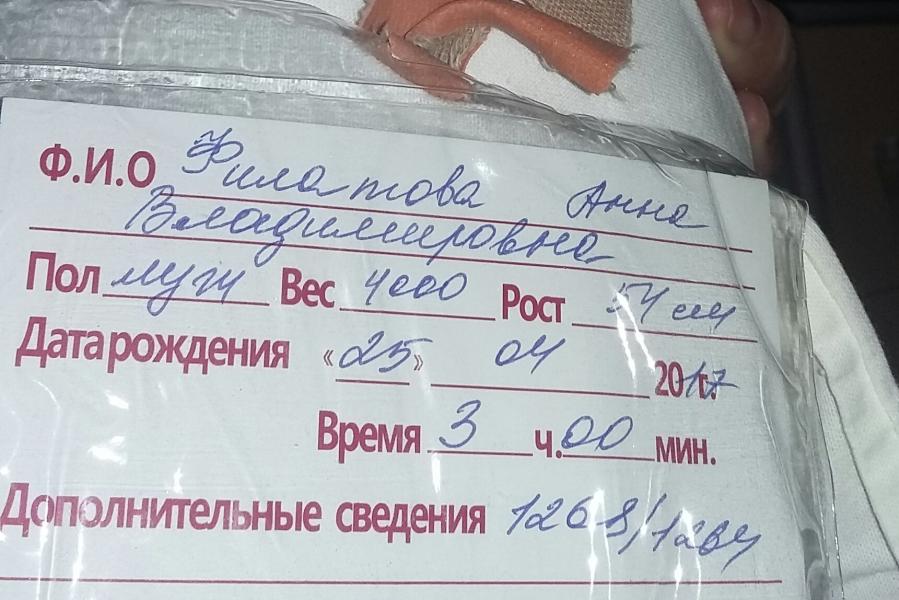 Ф.И.О Филатова Анна
Владимировна
Пол муж Вес 4000 Рост 54 см
Дата рождения «25» 04 2017
Время 3 ч. 00 мин.
Дополнительные сведения 1268/1264